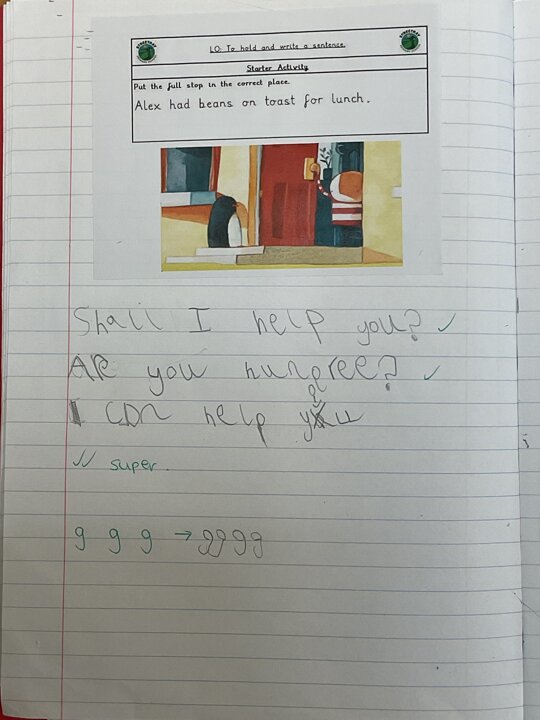 LO: To hold and write a sentence.
Starter Activity
Put the full stop in the correct place.
Alex had beans on toast for lunch.
Shall I help you?
ARe you hungree?
I can help you
super.
g g g → gggg